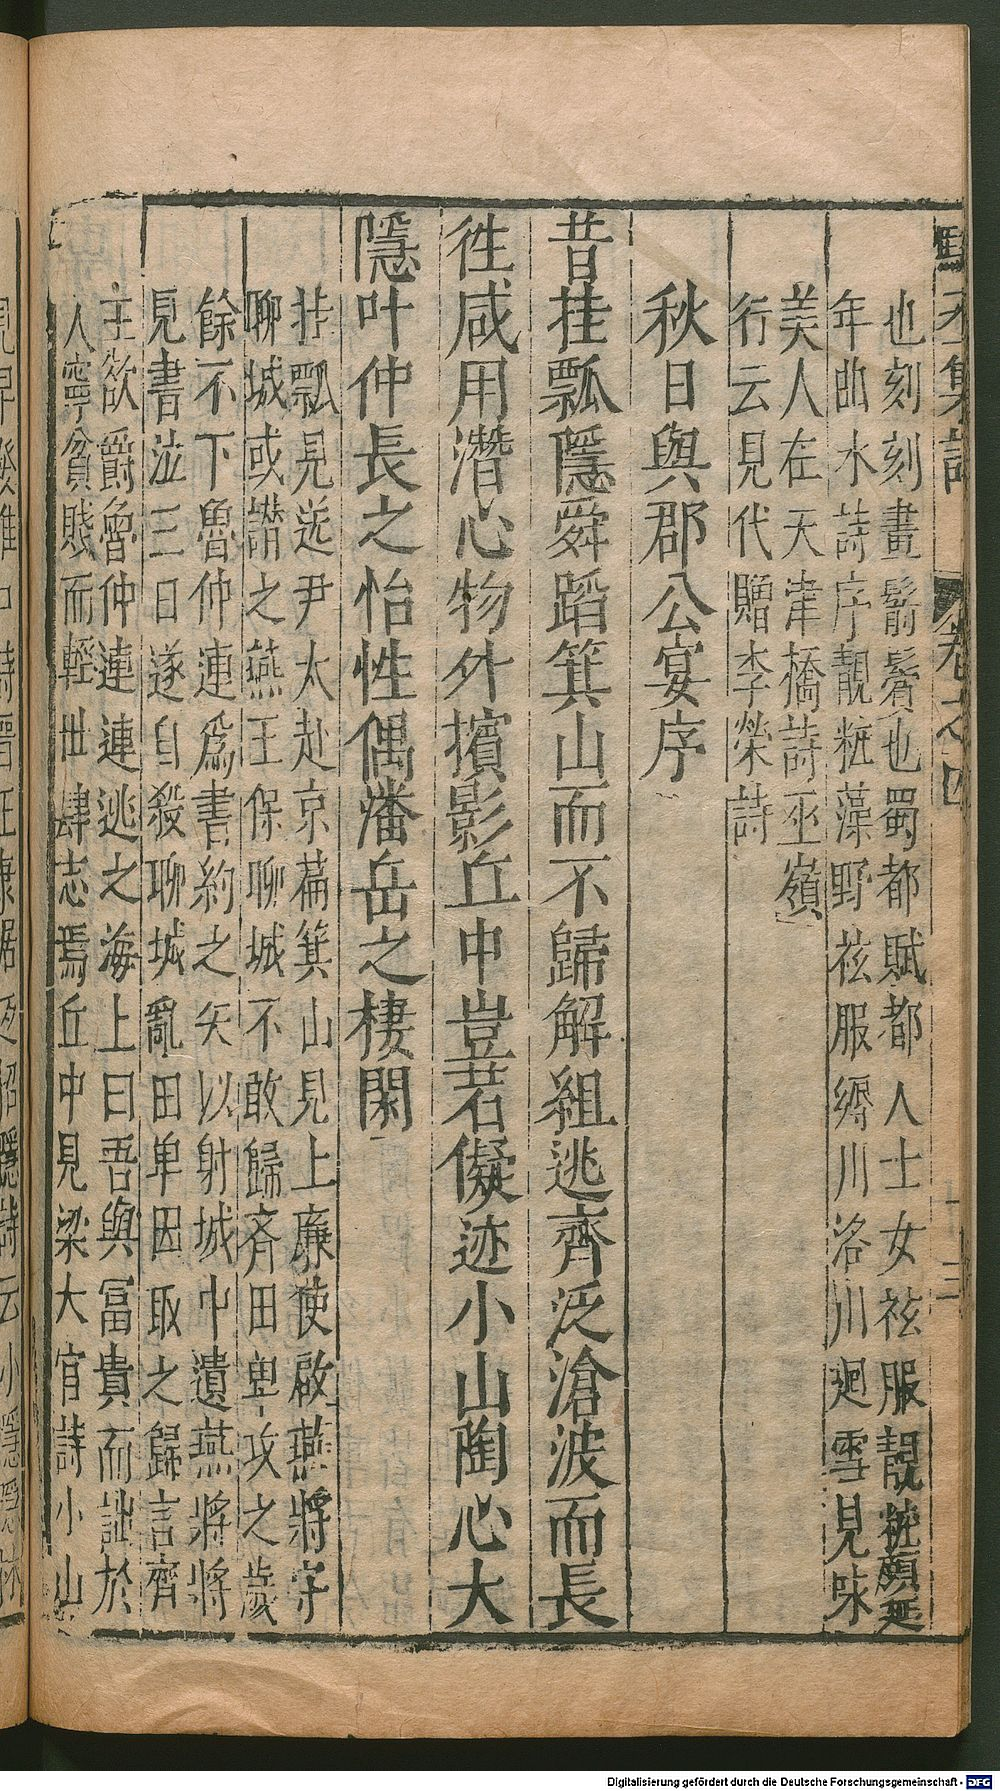 也刻刻畫鬋鬢也蜀都賦都人士女祛服靚粧顏延
年曲水詩序靚粧藻野祛服縟川洛川廻雪見咏
美人在天津橋詩巫嶺
行云見代贈李榮詩
秋日與郡公宴序
昔挂瓢隱舜蹈箕山而不歸解組逃齊泛滄波而長
徃咸用潛心物外擯影丘中豈若儗迹小山陶心大
隱叶仲長之怡性偶潘岳之棲閑
挂瓢見送尹大赴京萹箕山見上廉使啟燕將守
聊城或譖之燕王保聊城不敢歸齊田單攻之歲
餘不下魯仲連爲書約之矢以射城中遺燕將將
見書泣三日遂自殺聊城亂田单因取之歸言齊
王欲爵魯仲連連逃之海上曰吾與冨貴而詘於
人寧貧賤而輕世肆志焉丘中見梁大官詩小山
卷之四
三
Digitalisierung gefördert durch die Deutsche Forschungsgemeinschaft - DFG